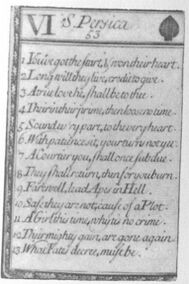 VI S. Persica
53
1 You've got the start, & won their heart.
2 Long will they live, credit to give.
3 At love hit, shall be to thee.
4 Their in their prime, then loose no time.
5 Sound in ry part, to the very heart.
6 With patience sit, your turn not yet.
7 A Courtier you, shall once subdue.
8 They shall return, then for you burn.
9 Farewell, lead Apes in Hell.
10 Safe they are not, cause of a Plot.
11 A Girl this time, why tis no crime.
12 Their mighty gain, are gone again.
13 What Fates decree, must be.